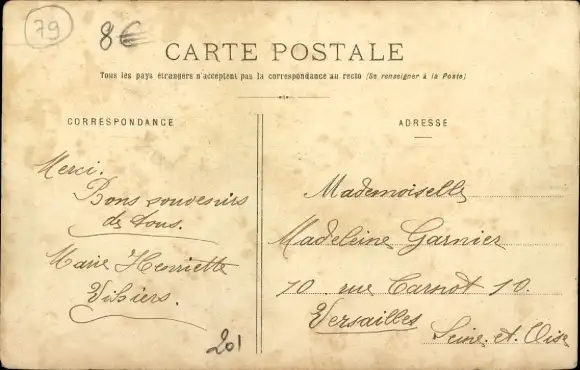 79
8€
CARTE POSTALE
Tous les pays étrangers n'acceptent pas la correspondance au recto (Se renseigner à la Poste)
CORRESPONDANCE
Merci.
Bons souvenirs
de tous.
Marie Henriette
Vihiers.
201
ADRESSE
Mademoiselle
Madeleine Garnier
10 rue Carnot 10.
Versailles
Seine. et. Oise